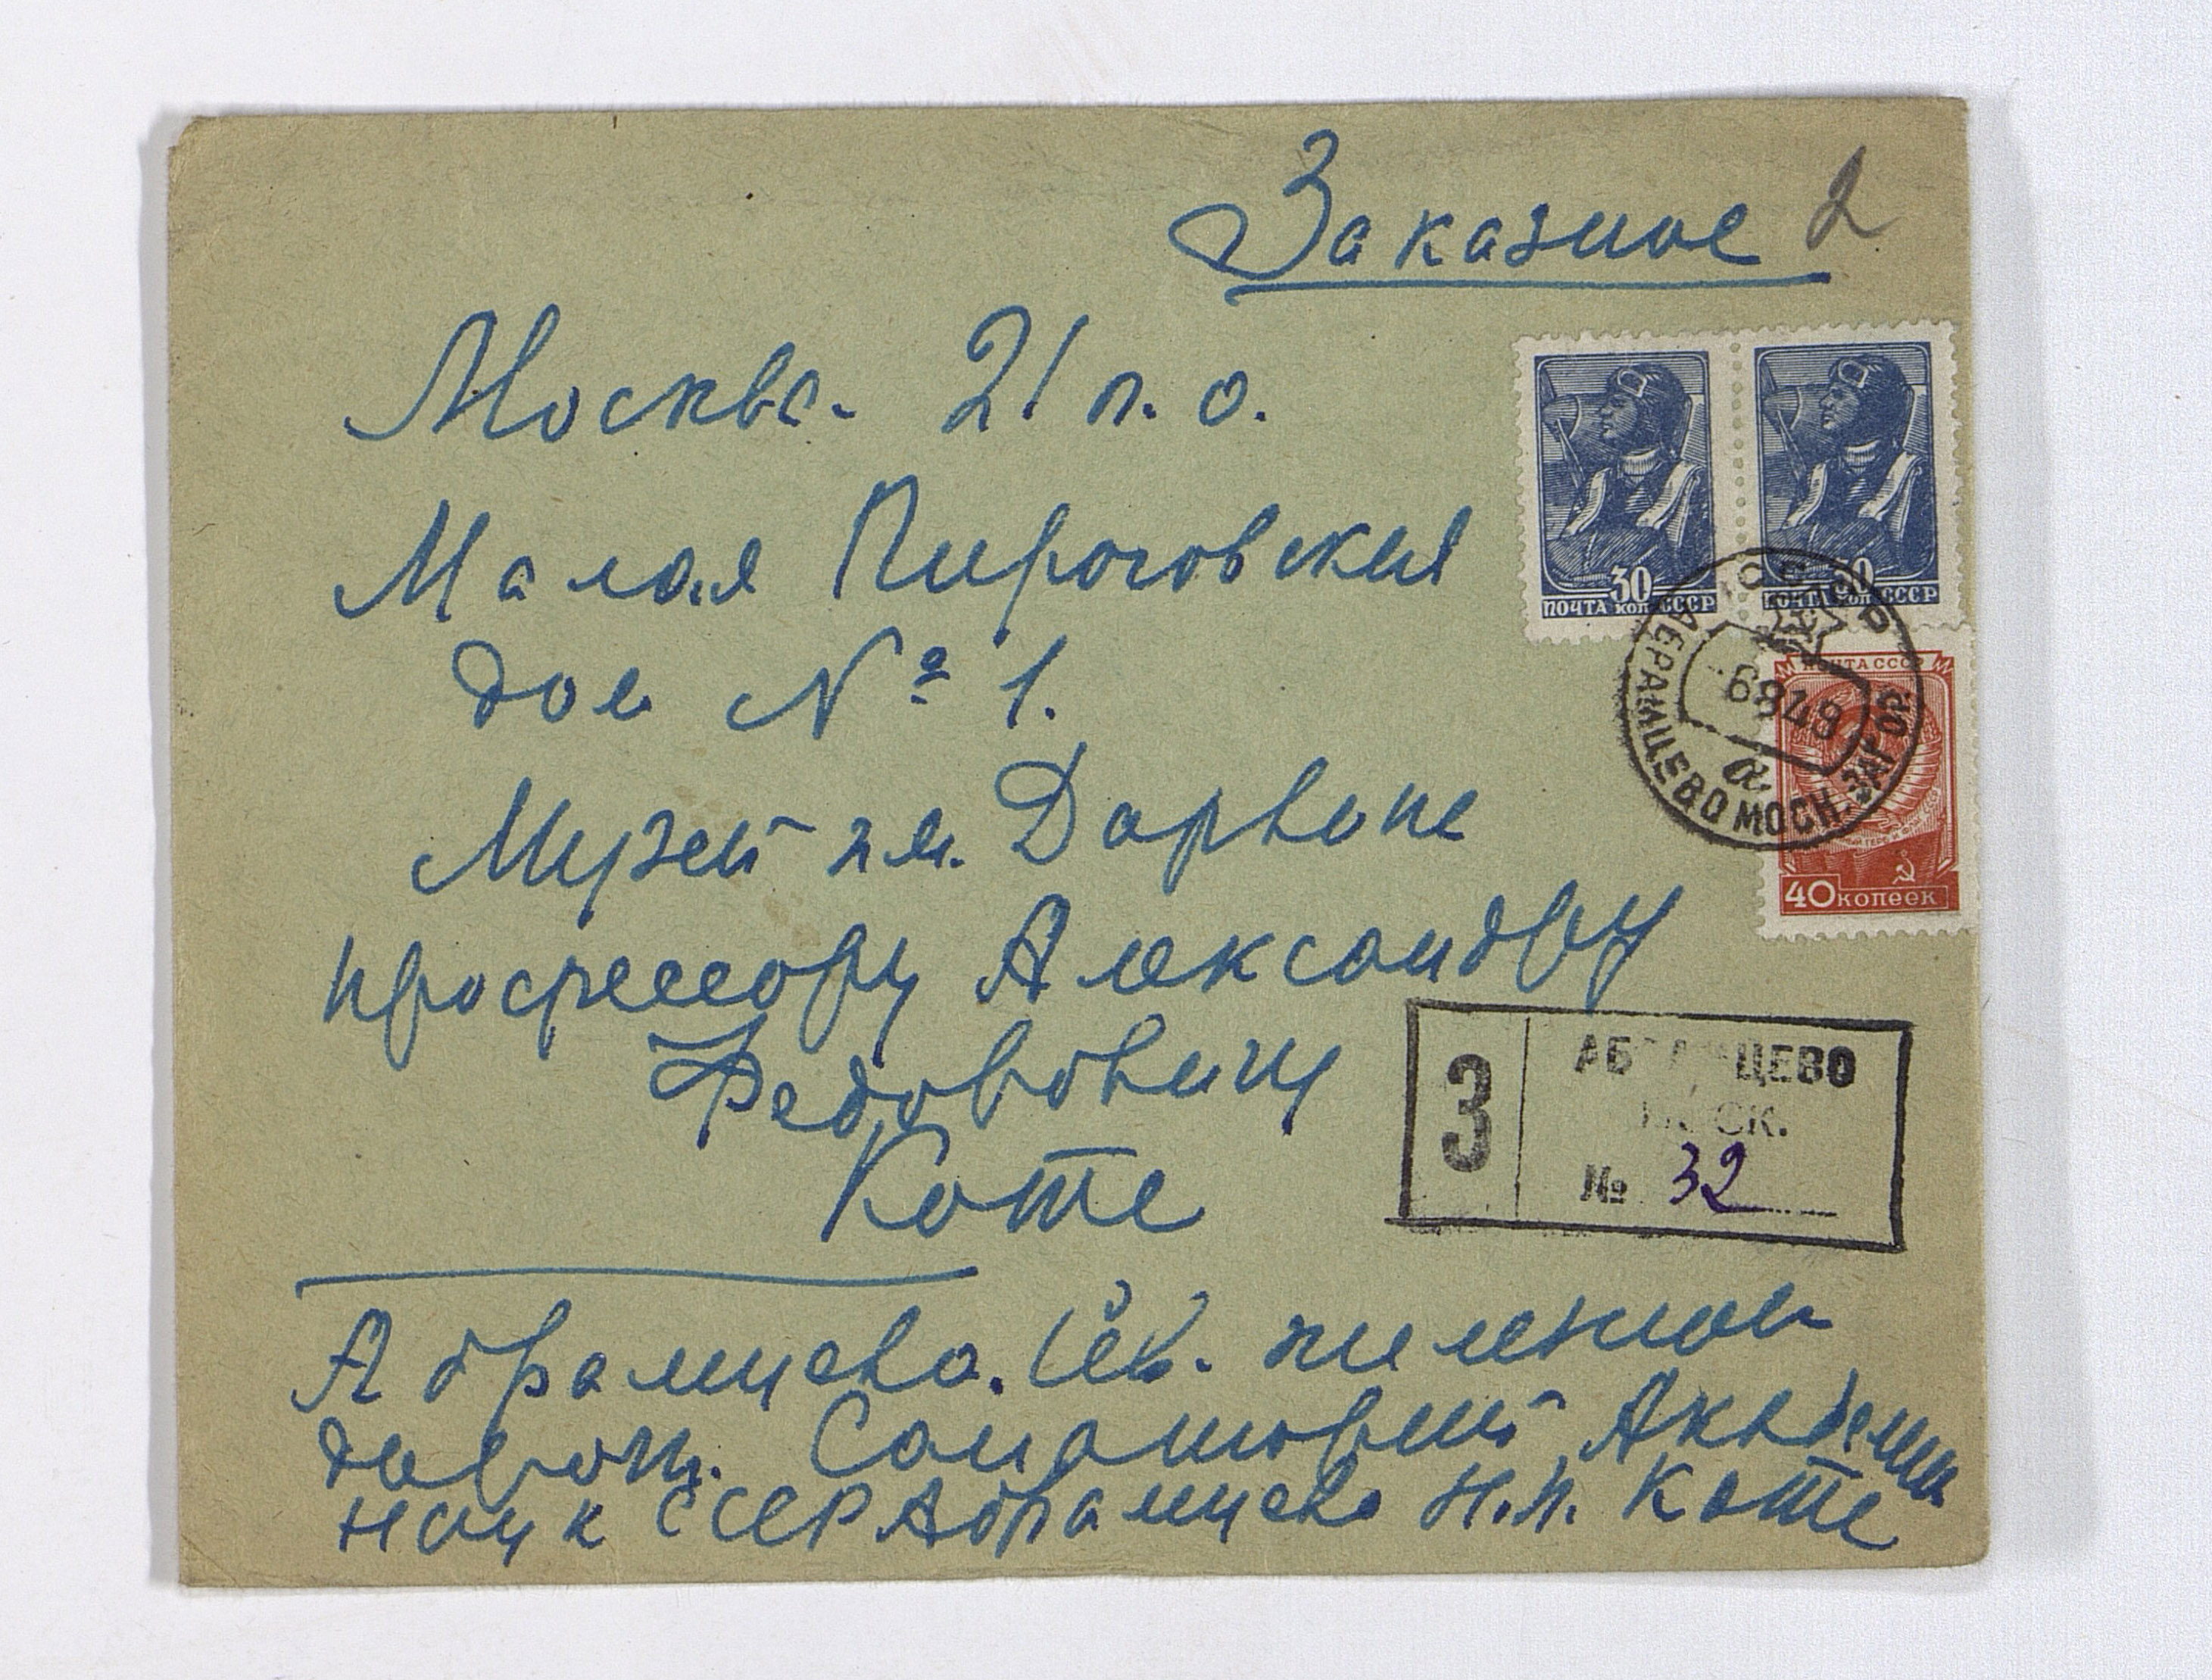 Заказное 2
Москва. 21 п. о.
Малая Пироговская
дом № 1.
Музей им. Дарвина
профессору Александру
Федоровичу
Котс
ПОЧТА 30 коп СССР
ПОЧТА коп СССР
СССР
АБРАМЦЕВО МОСК. ЗАГОР.
6 8 49
а
ПОЧТА СССР
40 копеек
З
АБРАМЦЕВО
МОСК.
№ 32
Абрамцево. Сев. железной
дорог. Санаторий Академии
наук СССР Абрамцево Н.Н. Котс